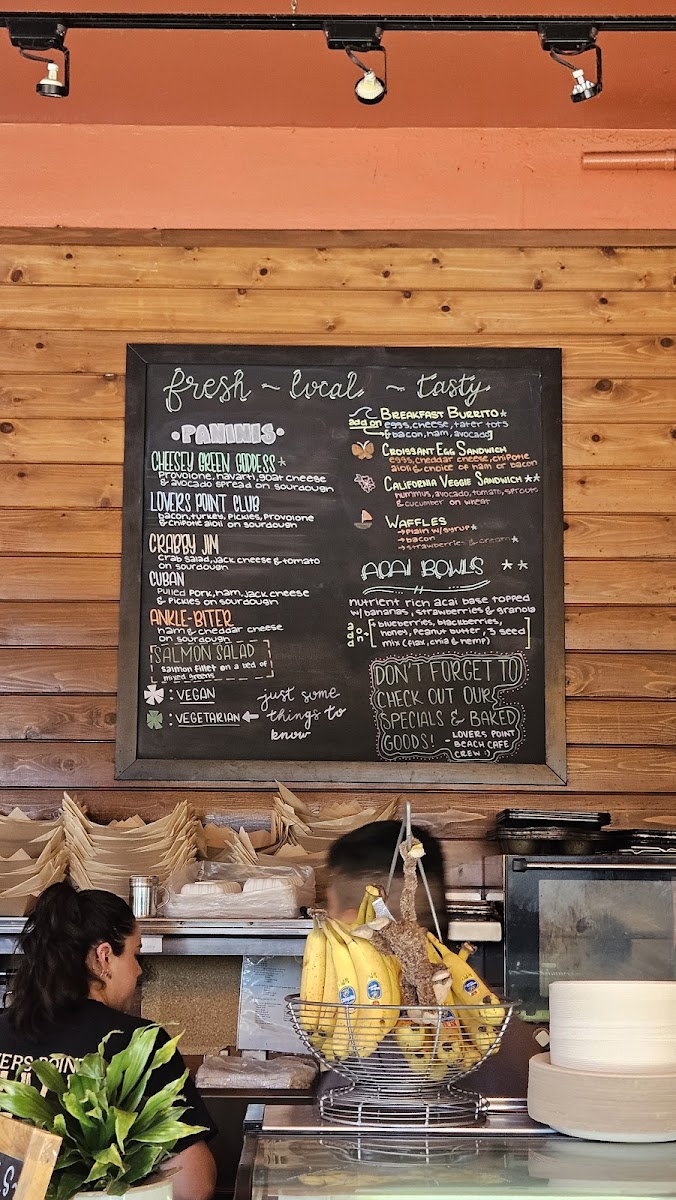 fresh ~ local ~ tasty
•PANINIS•
CHEESEY GREEN GODDESS*
Provolone, havarti, goat cheese
& avocado spread on sourdough
LOVERS POINT CLUB
bacon, turkey, pickles, provolone
& chipotle aioli on sourdough
CRABBY JIM
crab salad, jack cheese & tomato
on sourdough
CUBAN
Pulled pork, ham, jack cheese
& pickles on sourdough
ANKLE-BITER
ham & cheddar cheese
on sourdough
SALMON SALAD
salmon fillet on a bed of
mixed greens
: VEGAN
: VEGETARIAN
just some
things to
know
BREAKFAST BURRITO*
eggs, cheese, tater tots
add on
& bacon, ham, avocado]
CROISSANT EGG SANDWICH
eggs, cheddar cheese, chipotle
aioli & choice of ham or bacon
CALIFORNIA VEGGIE SANDWICH**
hummus, avocado, tomato, sprouts
& cucumber on wheat
WAFFLES
→ plain w/ syrup*
→ bacon
→ strawberries & cream*
ACAI BOWLS **
nutrient rich acai base topped
w/ bananas, strawberries & granola
add on-
[+ blueberries, blackberries,
honey, peanut butter, 3 seed
mix (flax, chia & hemp)]
DON'T FORGET TO
CHECK OUT OUR
SPECIALS & BAKED
GOODS!
- LOVERS POINT
BEACH CAFE
CREW :)
VERS POIN